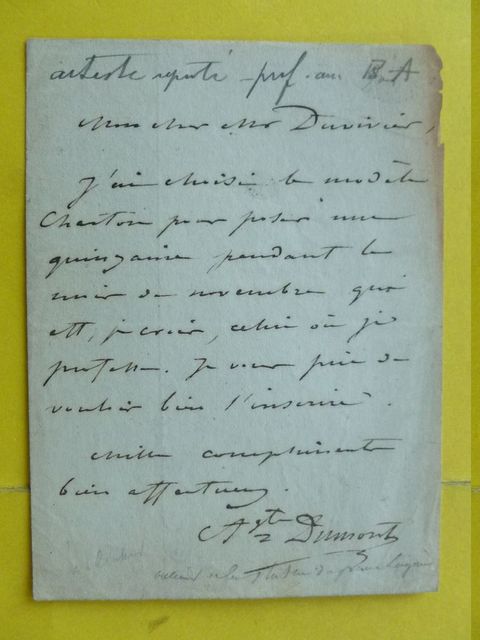 artiste réputé - prof. aux B. A
Mon cher Mr Duvivier,
J'ai choisi le modèle
Charton pour poser une
quinzaine pendant le
mois de novembre qui
est, je crois, celui où je
professe. Je vous prie de
vouloir bien l'inscrire.
Mille compliments
bien affectueux.
Aste Dumont